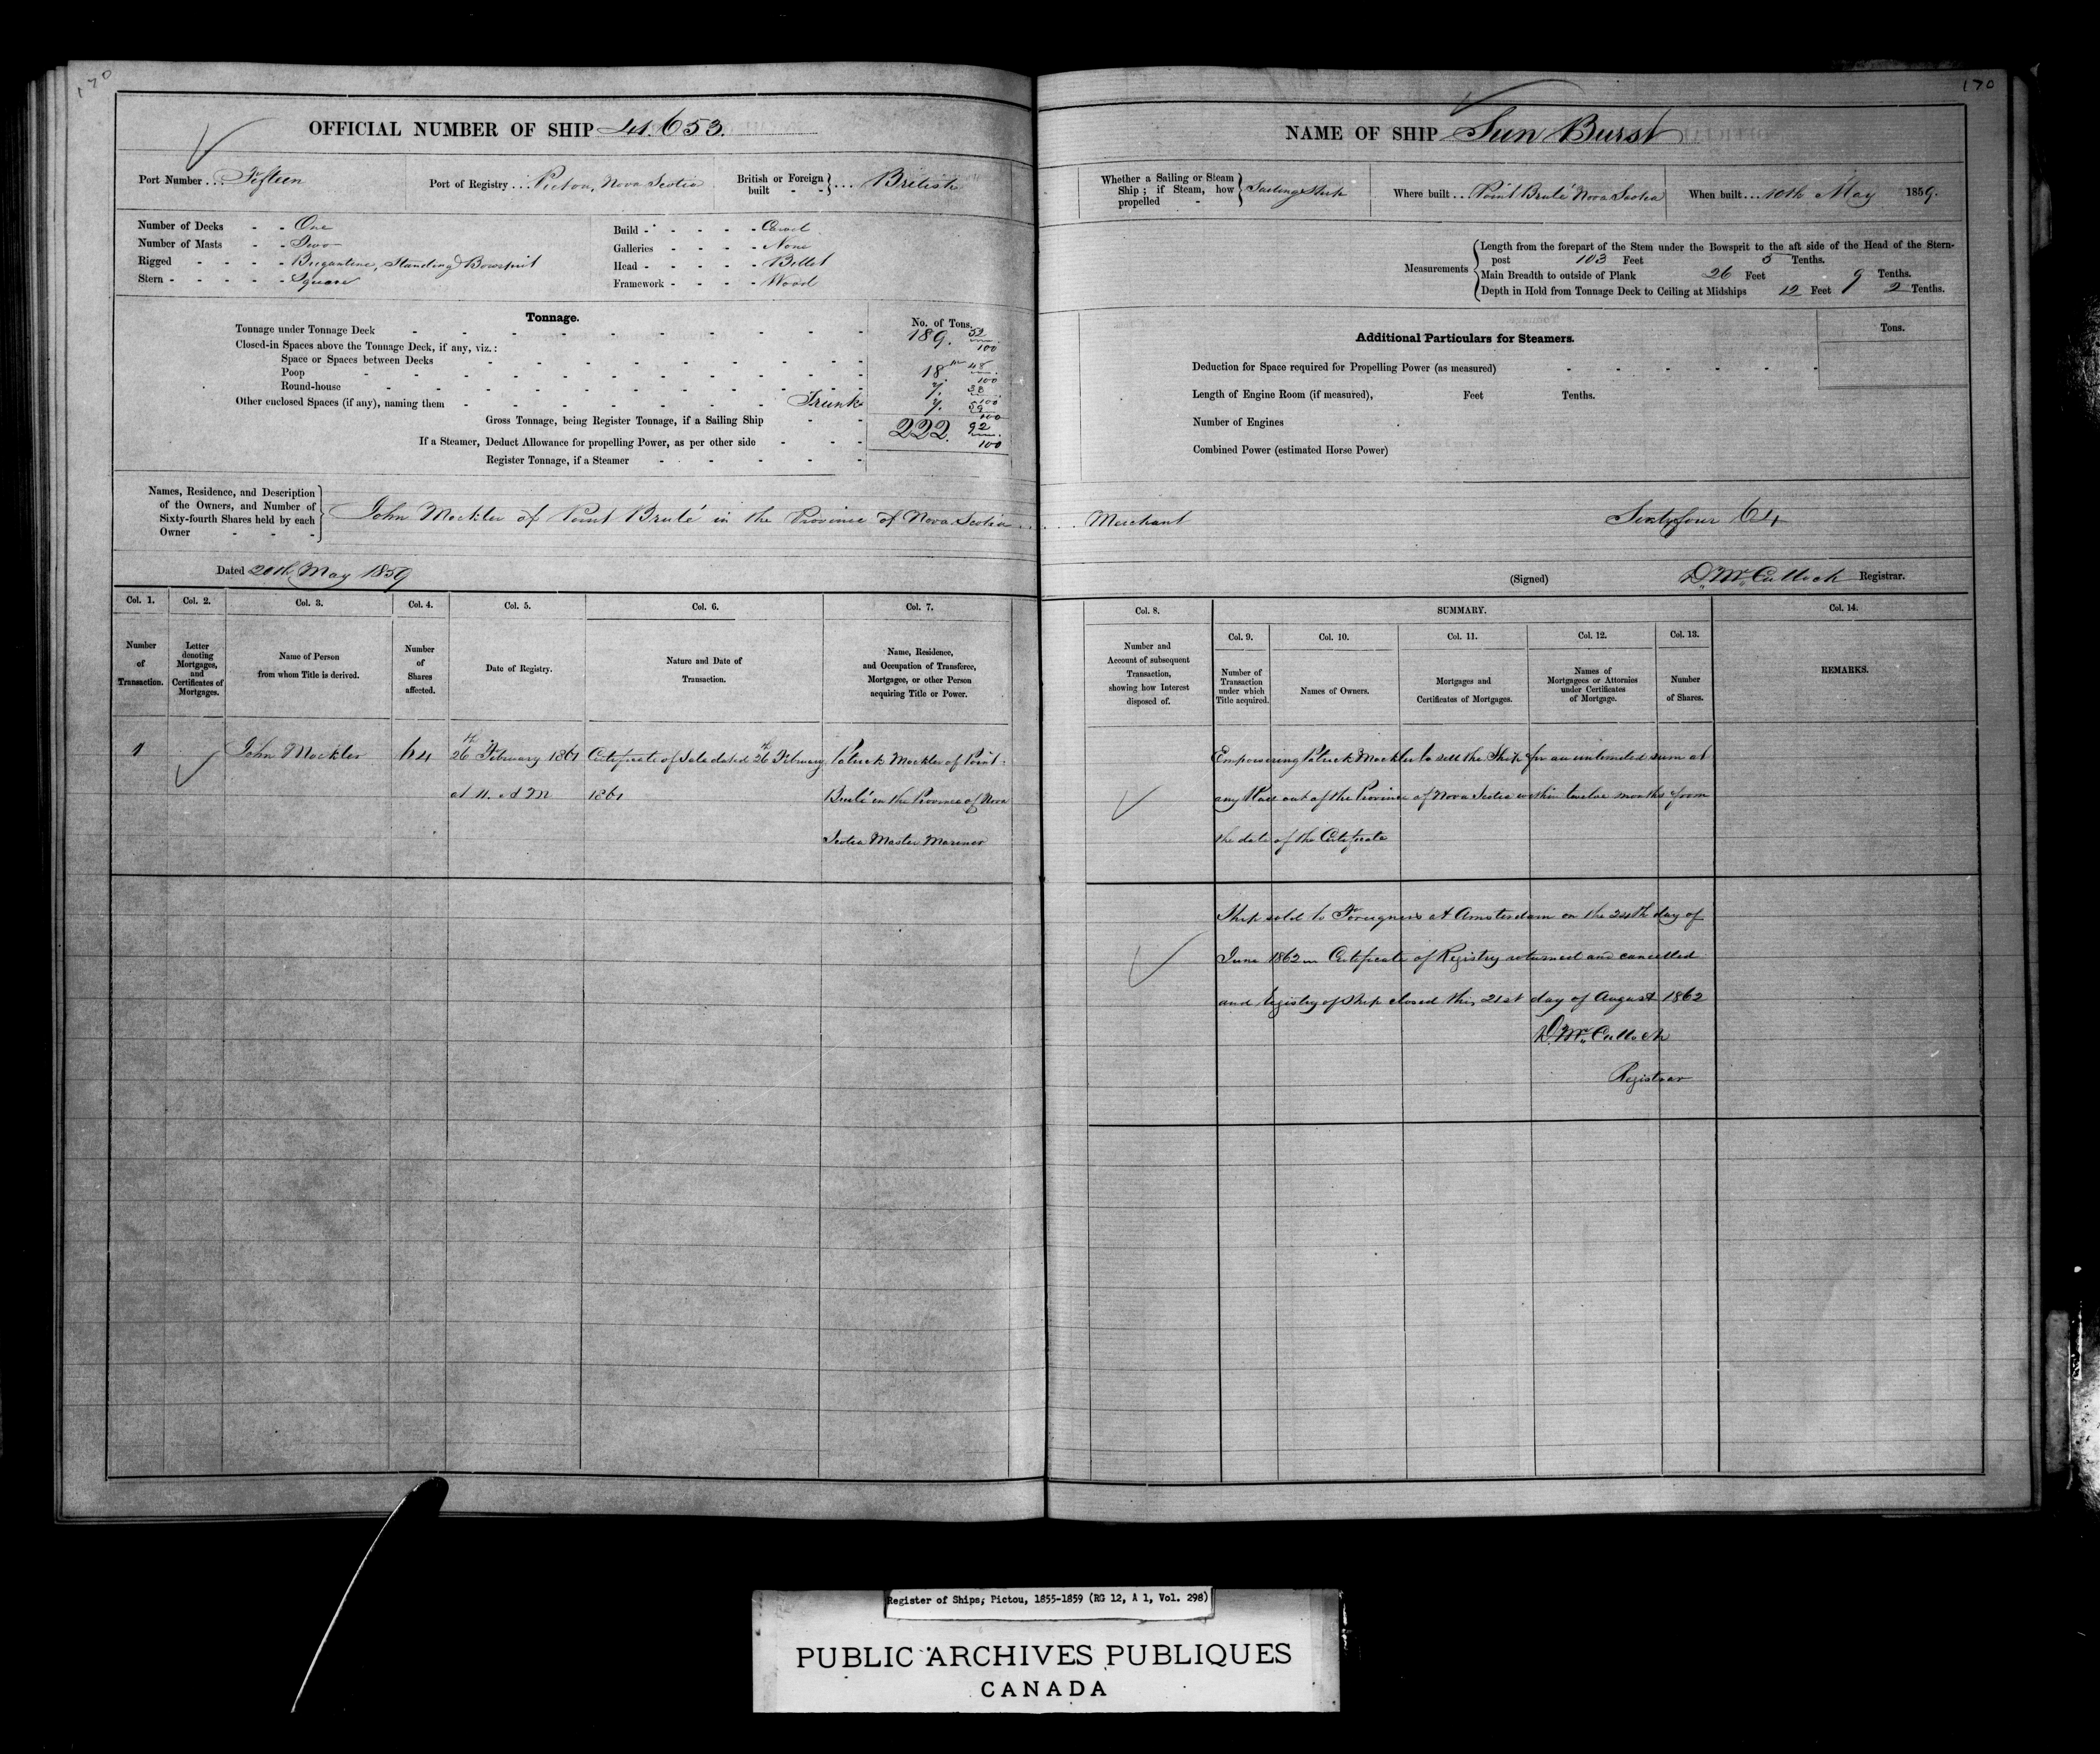 170
OFFICIAL NUMBER OF SHIP 41.653.
Port Number ... Fifteen
Port of Registry ... Pictou, Nova Scotia
British or Foreign built - - } ... British
Number of Decks - - One
Number of Masts - - Two
Rigged - - - - Brigantine, Standing Bowsprit
Stern - - - - - Square
Build - - - - - Carvel
Galleries - - - - None
Head - - - - - Billet
Framework - - - - Wood
Tonnage.
No. of Tons.
Tonnage under Tonnage Deck 189. 52/100
Closed-in Spaces above the Tonnage Deck, if any, viz.:
Space or Spaces between Decks
Poop 18 48/100
Round-house 7. 38/100
Other enclosed Spaces (if any), naming them Trunk 7.
Gross Tonnage, being Register Tonnage, if a Sailing Ship 222. 92/100
If a Steamer, Deduct Allowance for propelling Power, as per other side
Register Tonnage, if a Steamer
Names, Residence, and Description
of the Owners, and Number of
Sixty-fourth Shares held by each
Owner - - -
John Mockler of Point Brulé in the Province of Nova Scotia
Dated 20th May 1859
Col. 1. Col. 2. Col. 3. Col. 4. Col. 5. Col. 6. Col. 7.
Number of Transaction.
Letter denoting Mortgages, and Certificates of Mortgages.
Name of Person from whom Title is derived.
Number of Shares affected.
Date of Registry.
Nature and Date of Transaction.
Name, Residence, and Occupation of Transferee, Mortgagee, or other Person acquiring Title or Power.
1 John Mockler 64 26th February 1861 Certificate of Sale dated 26th February Patrick Mockler of Point
at 11. A M 1861 Brulé in the Province of Nova
Scotia Master Mariner
170
NAME OF SHIP Sun Burst
Whether a Sailing or Steam Ship; if Steam, how propelled - } Sailing Ship
Where built ... Point Brulé Nova Scotia
When built ... 10th May 1859.
Measurements
Length from the forepart of the Stem under the Bowsprit to the aft side of the Head of the Stern-
post 103 Feet 5 Tenths.
Main Breadth to outside of Plank 26 Feet 9 Tenths.
Depth in Hold from Tonnage Deck to Ceiling at Midships 12 Feet 2 Tenths.
Additional Particulars for Steamers.
Tons.
Deduction for Space required for Propelling Power (as measured)
Length of Engine Room (if measured), Feet Tenths.
Number of Engines
Combined Power (estimated Horse Power)
Merchant Sixty four 64
(Signed) D. McCulloch Registrar.
Col. 8. SUMMARY. Col. 14.
Col. 9. Col. 10. Col. 11. Col. 12. Col. 13.
Number and Account of subsequent Transaction, showing how Interest disposed of.
Number of Transaction under which Title acquired.
Names of Owners.
Mortgages and Certificates of Mortgages.
Names of Mortgagees or Attornies under Certificates of Mortgage.
Number of Shares.
REMARKS.
Empowering Patrick Mockler to sell the Ship for an unlimited sum at
any Place out of the Province of Nova Scotia within twelve months from
the date of the Certificate
Ship sold to Foreigners at Amsterdam on the 24th day of
June 1862 Certificate of Registry returned and cancelled
and Registry of Ship closed this 21st day of August 1862
D. McCulloch
Registrar
Register of Ships; Pictou, 1855-1859 (RG 12, A 1, Vol. 298)
PUBLIC ARCHIVES PUBLIQUES
CANADA